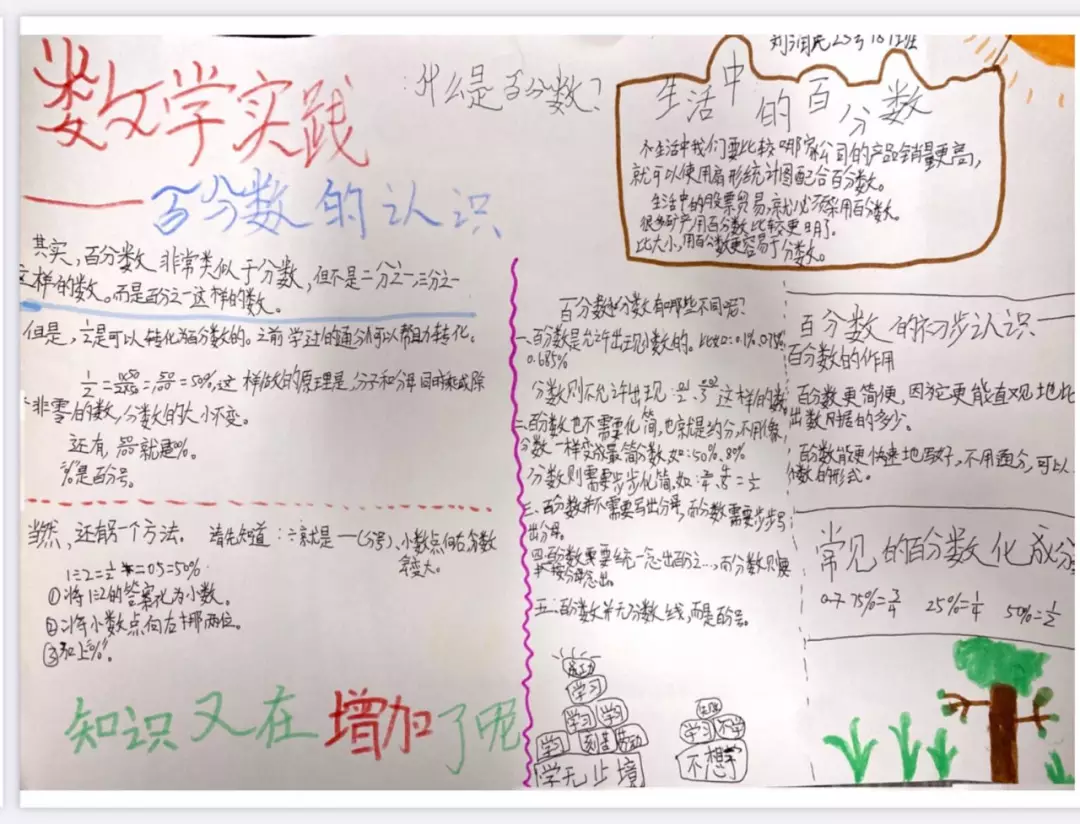 数学实践
——百分数的认识
什么是百分数?
其实,百分数非常类似于分数,但不是二分之一,三分之一
这样的数。而是百分之一这样的数。
但是,½是可以转化为百分数的。之前学过的通分可以帮助转化。
=50%,这样做的原理是,分子和分母同时乘或除
个非零的数,分数的大小不变。
还有,就是%。
%是百分号。
当然,还有另一个方法。 请先知道:÷就是—(分号)、小数点向右,分数
会变大。
1÷2=½=0.5=50%
①将1÷2的答案化为小数。
②将小数点向右挪两位。
③加上“%”。
知识又在增加了呢
25号
班
生活中的百分数
生活中我们要比较哪家公司的产品销量更高,
就可以使用扇形统计图配合百分数。
生活中的股票贸易,就必须采用百分数。
很多矿产用百分数比较更明了。
比大小,用百分数更容易于分数。
百分数与分数有哪些不同呢?
一、百分数是允许出现小数的。比如:0.1%,0.75%,
0.685%
分数则不允许出现: 这样的数
二、百分数也不需要化简,也就是约分,不用像
分数一样变成最简分数如:50%、80%
分数则需要步步化简,如: =½
三、百分数并不需要写出分母,而分数需要步步写
出分母。
四、百分数要统一念出百分之…,而分数则要
按分母念出。
五、百分数并无分数线,而是百分号。
成功
学习
学习 学习
学习 刻苦 劳动
学无止境
学习 不学
不想学
百分数的初步认识——
百分数的作用
百分数更简便,因为它更能直观地比
出数据的多少。
百分数能更快速地写好,不用通分,可以
数的形式。
常见的百分数化成分
75%=¾ 25%=¼ 50%=½